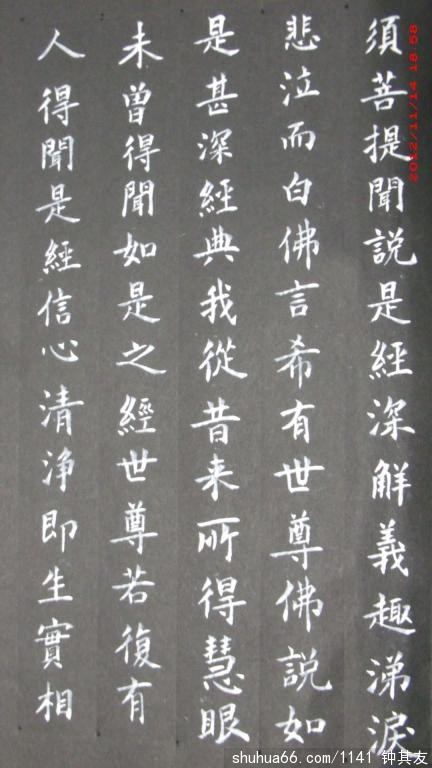 須菩提聞説是經深解義趣涕淚
悲泣而白佛言希有世尊佛説如
是甚深經典我從昔来所得慧眼
未曾得聞如是之經世尊若復有
人得聞是經信心清浄即生實相
2012/11/14 18:58
shuhua66.com/1141 钟其友